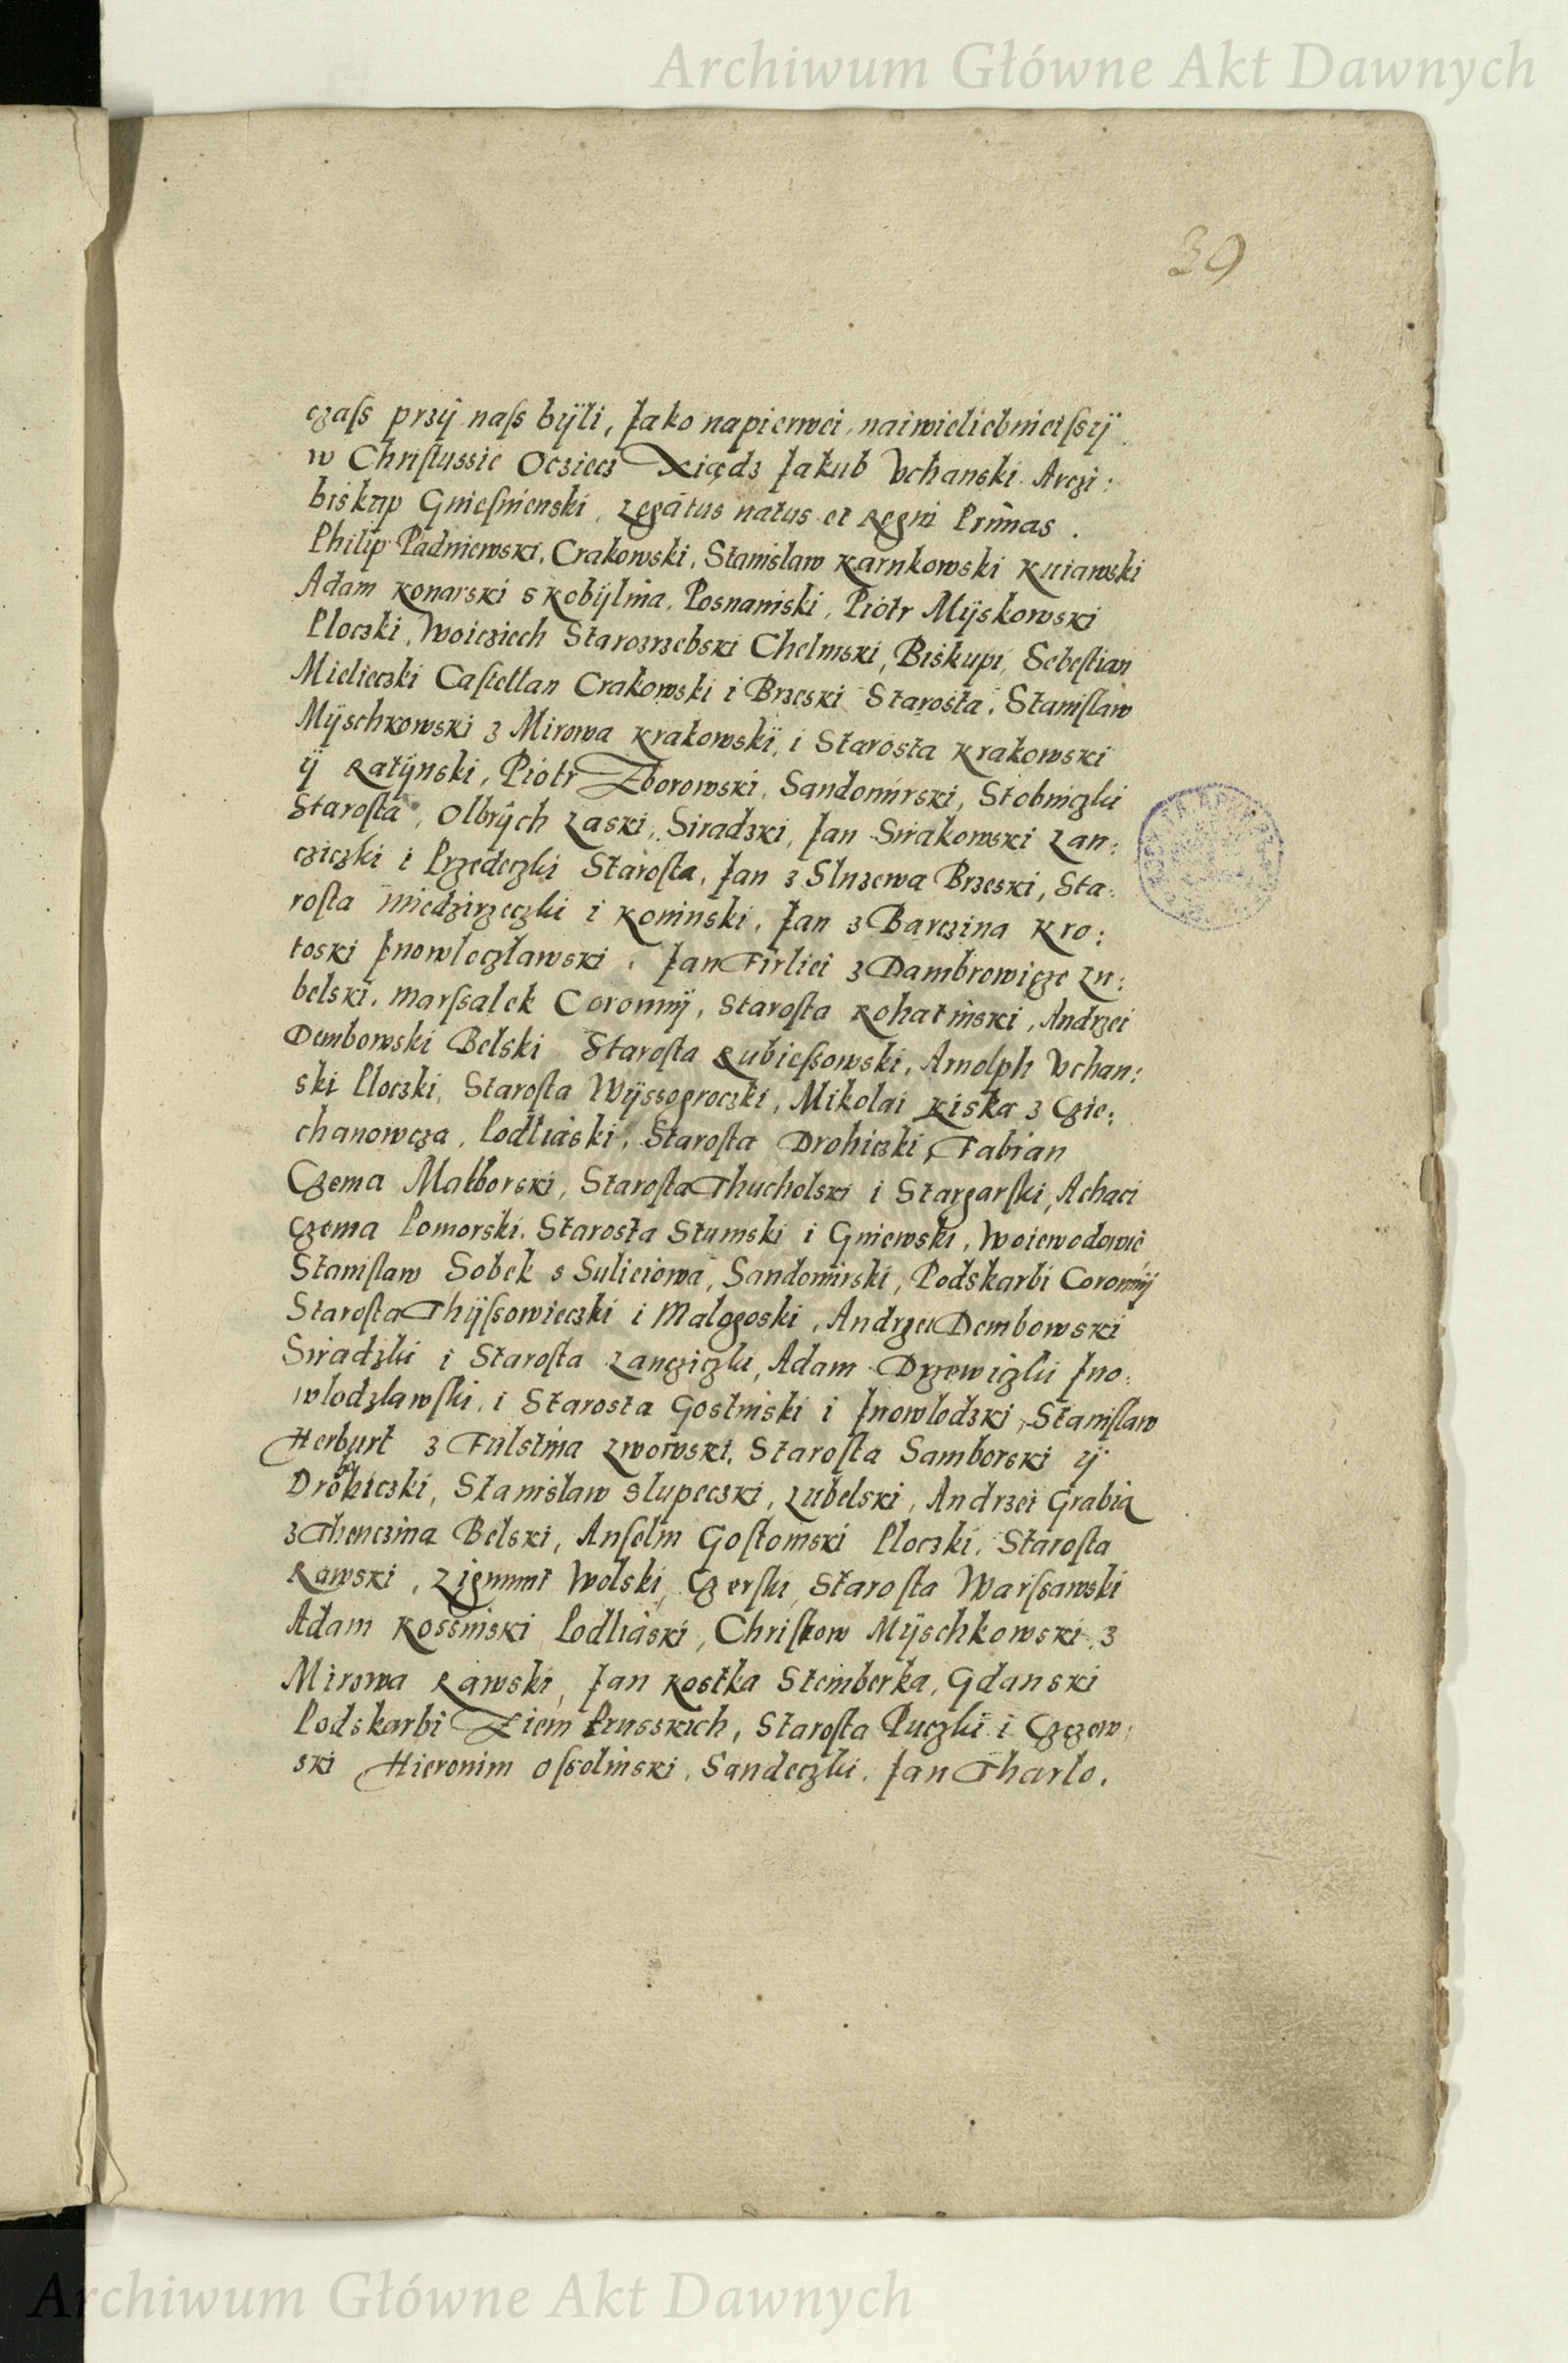 Archiwum Główne Akt Dawnych
39
czaſs przÿ naſs bÿli, Jako napierwei, naiwieliebnieiſsÿ
w Chriſtussie Ocziecz Xiądz Jakub Vchanski Arczi:
biskup Gnieſnienski, Legatus natus et Regni Primas.
Philip Padniewski, Crakowski, Stanislaw Karnkowski Kuiawski
Adam Konarski s Kobÿlina, Posnaniski, Piotr Mÿskowski
Ploczki, Woiciech Starozrzebski Chelmski, Biskupi, Sebeſtian
Mielieczki Caſtellan Crakowski i Brzeski Starosta, Staniſlaw
Mÿschkowski z Mirowa Krakowskÿ, i Starosta Krakowski
ÿ Ratÿnski, Piotr Zborowski, Sandomirski, Stobniczki
Staroſta, Olbrÿch Laski, Siradzki, Jan Sirakowski Lan:
cziczki i Przedeczki Staroſta, Jan z Sluzewa Brzeski, Sta:
roſta miedzirzeczki i Koninski, Jan z Barczina Kro:
toski Jnowloczlawski, Jan Firliei z Dambrowicze Lu:
belski, Marſsalek Coronnÿ, Staroſta Rohatinski, Andrzei
Dembowski Belski Staroſta Rubieſsowski, Arnolph Vchan:
ski Ploczki, Staroſta Wÿssogroczki, Mikolai Kiska z Czie:
chanowcza, Podliaski, Staroſta Drohiczki, Fabian
Czema Malborski, Staroſta Thucholski i Stargarſki, Achaci
Czema Pomorski, Starosta Stumski i Gniewski, Woiewodowie
Staniſlaw Sobek s Sulieiowa, Sandomirski, Podskarbi Coronnÿ
Staroſta Thÿſsowieczki i Malogoski, Andrzei Dembowski
Siradzki i Staroſta Lancziczki, Adam Drzewiczki Jno:
wlodzlawſki, i Starosta Gostinski i Jnowlodzki, Staniſlaw
Herburt z Fulstina Lwowski, Staroſta Samborski ÿ
Drohobiczki, Stanislaw Slupeczki, Lubelski, Andrzei Grabia
z Thenczina Belski, Anſelm Goſtomski Ploczki, Staroſta
Rawski, Zigmunt Wolski, Czerſki, Staroſta Warſsawski
Adam Kossinski Podliaski, Chriſtow Mÿschkowski z
Mirowa Rawski, Jan Kostka Stemberka, Gdanski
Podskarbi Ziem Prusskich, Staroſta Puczki i Czczew:
ski Hieronim Oſsolinski, Sandeczki, Jan Tharlo,
Archiwum Główne Akt Dawnych